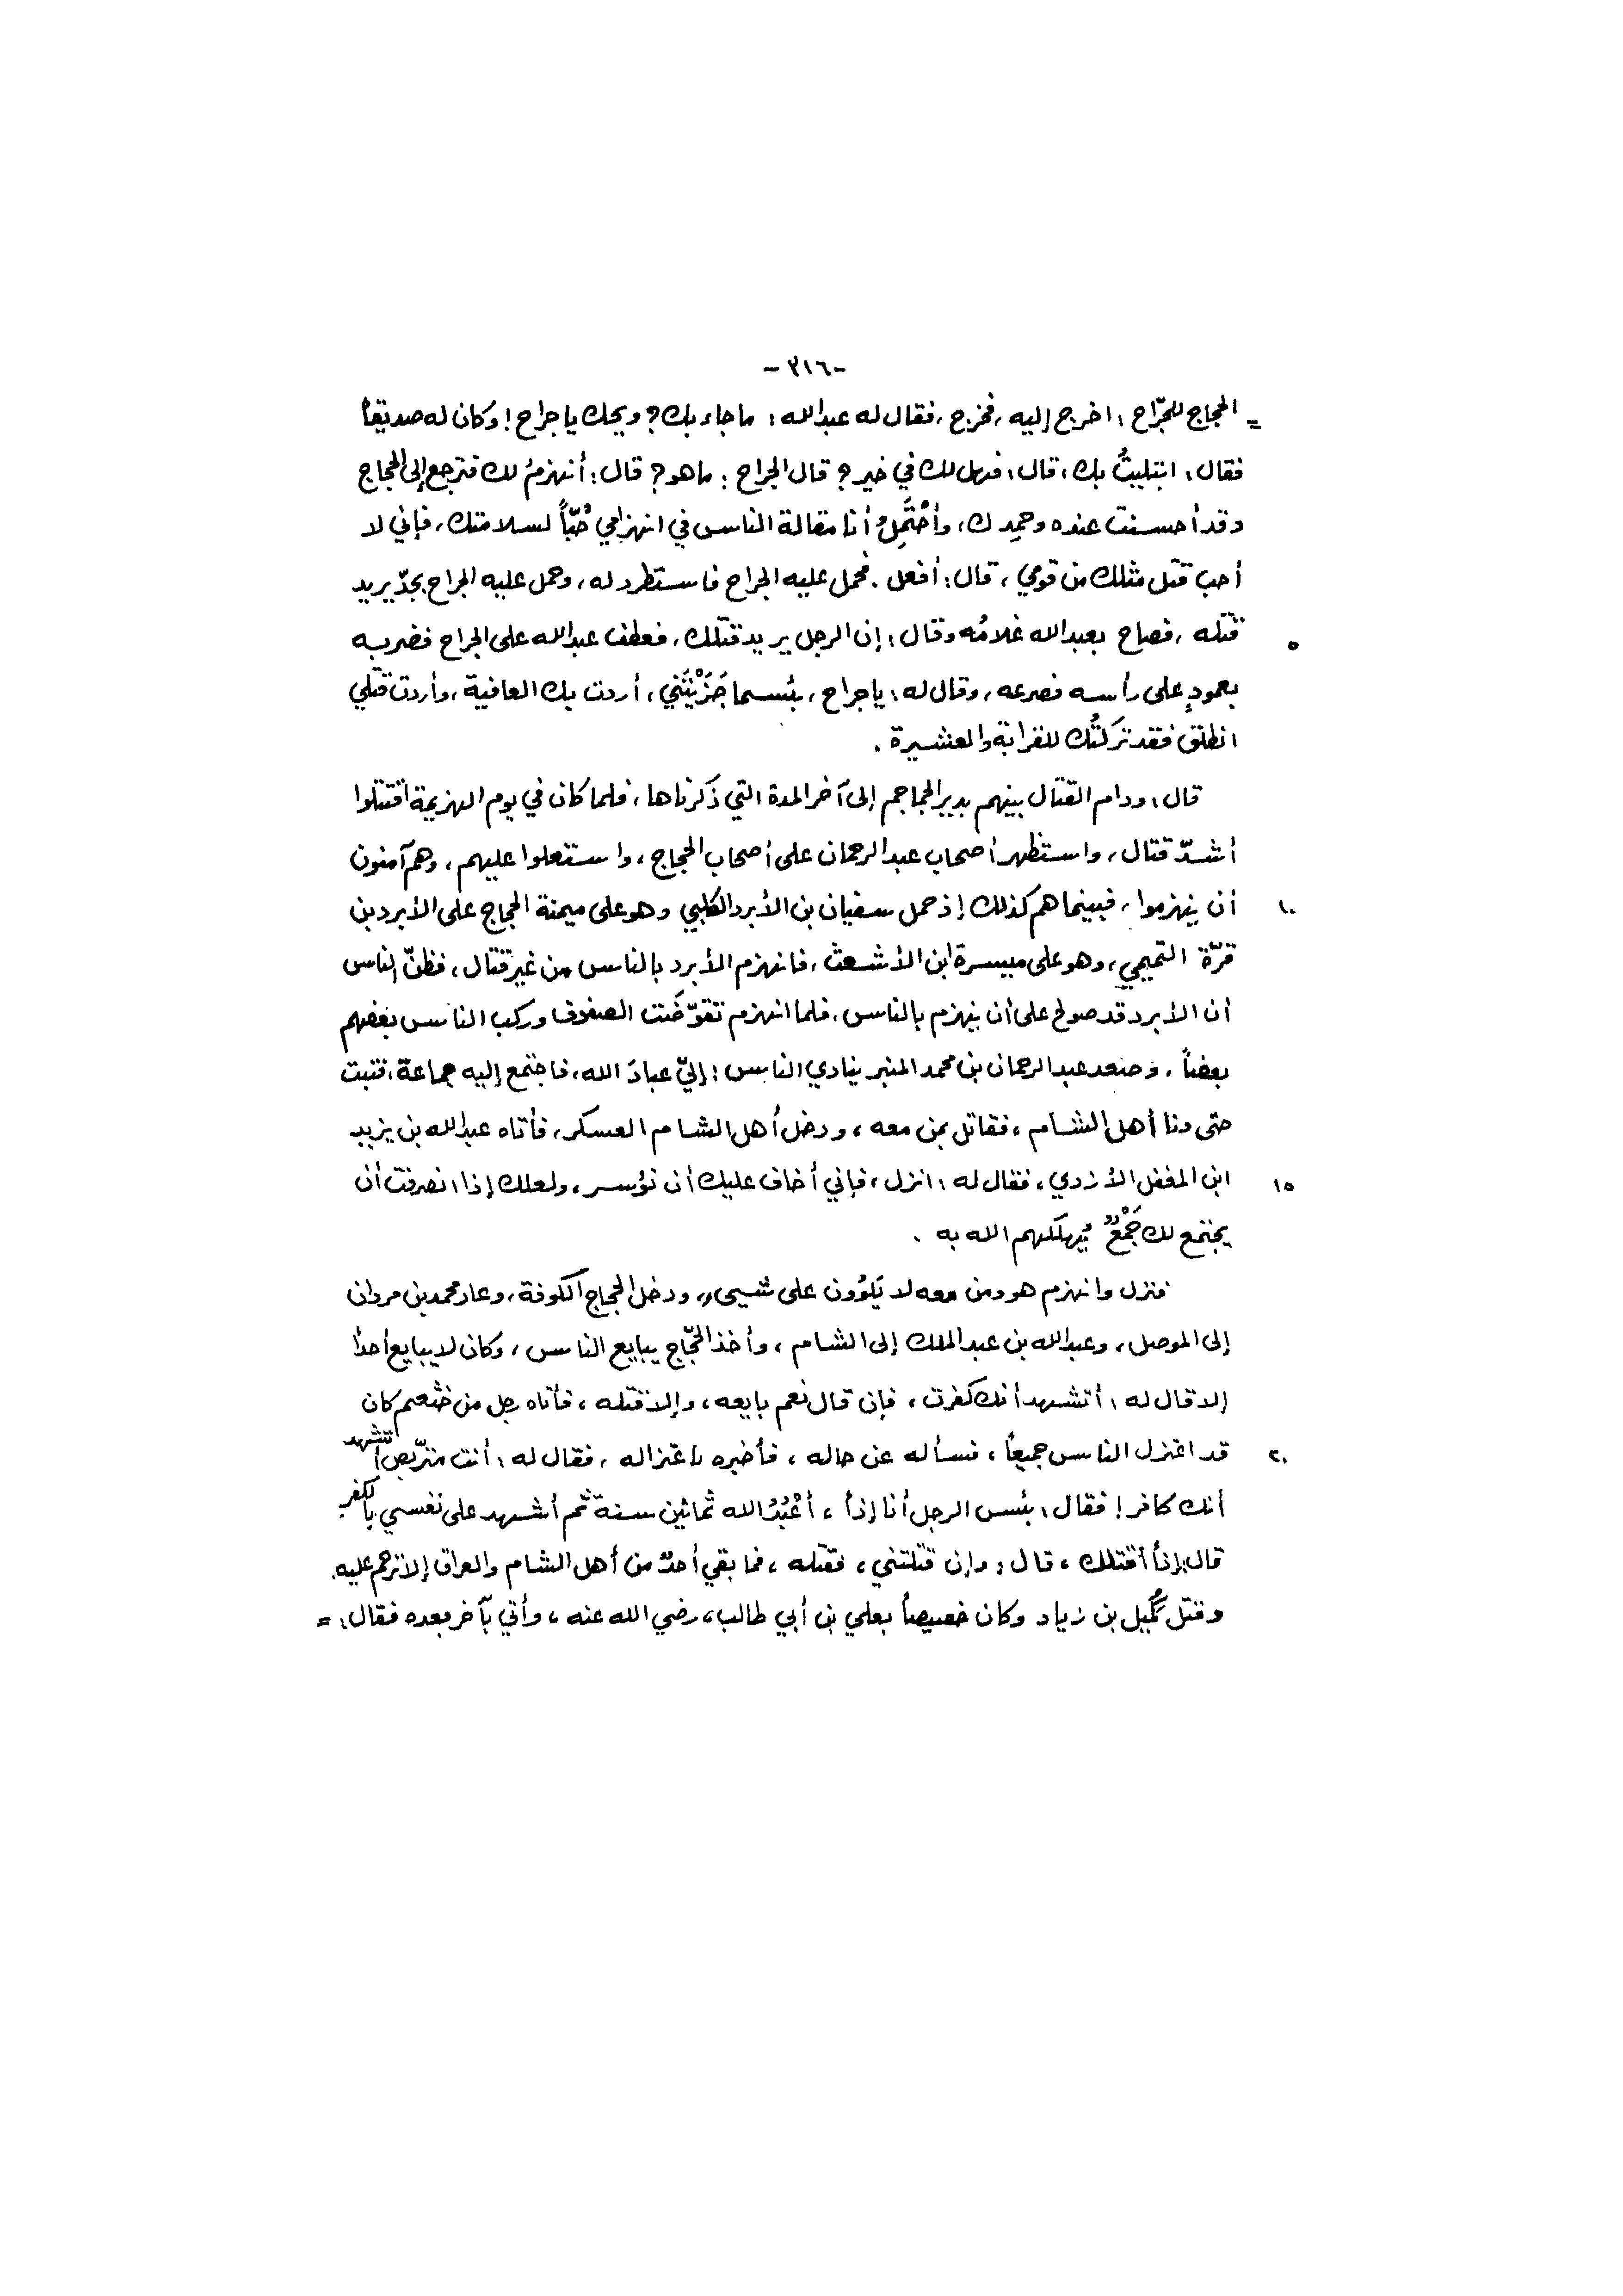 -٣١٦-
= الحجاج للجرّاح: اخرج إليه، فخرج، فقال له عبدالله: ما جاء بك؟ ويحك يا جراح! وكان له صديقاً
فقال: ابتليتُ بك، قال: فهل لك في خير؟ قال الجراح: ما هو؟ قال: أنهزمُ لك فترجع إلى الحجاج
وقد أحسنت عنده وحمِدك، وأحْتَمِلُ أنا مقالة الناس في انهزامي حُبّاً لسلامتك، فإني لا
أحب قتل مثلك من قومي، قال: أفعل. فحمل عليه الجراح فاستطرد له، وحمل عليه الجراح بجدّ يريد
٥ قتله، فصاح بعبدالله غلامُه وقال: إن الرجل يريد قتلك، فعطف عبدالله على الجراح فضربه
بعمودٍ على رأسه فصرعه، وقال له: يا جراح، بئسما جَزَيْتَني، أردت بك العافية، وأردت قتلي
انطلق فقد تركتُك للقرابة والعشيرة.
قال: ودام القتال بينهم بدير الجماجم إلى آخر المدة التي ذكرناها، فلما كان في يوم الهزيمة اقتتلوا
أشدّ قتال، واستظهر أصحاب عبدالرحمان على أصحاب الحجاج، واستعلوا عليهم، وهم آمنون
١٠ أن ينهزموا، فبينما هم كذلك إذ حمل سفيان بن الأبرد الكلبي وهو على ميمنة الحجاج على الأبرد بن
قرّة التميمي، وهو على ميسرة ابن الأشعث، فانهزم الأبرد بالناس من غير قتال، فظنّ الناس
أن الأبرد قد صولح على أن ينهزم بالناس، فلما انهزم تقوّضَت الصفوف وركب الناس بعضهم
بعضاً، وصعد عبدالرحمان بن محمد المنبر ينادي الناس: إليّ عبادَ الله، فاجتمع إليه جماعة، فثبت
حتى دنا أهل الشام، فقاتل بمن معه، ودخل أهل الشام العسكر، فأتاه عبدالله بن يزيد
١٥ ابن المغفل الأزدي، فقال له: انزل، فإني أخاف عليك أن تؤسر، ولعلك إذا انصرفت أن
يجتمع لك جَمْعٌ يُهلكهم الله به.
فنزل وانهزم هو ومن معه لا يَلوُون على شيىء، ودخل الحجاج الكوفة، وعاد محمد بن مروان
إلى الموصل، وعبدالله بن عبدالملك إلى الشام، وأخذ الحجّاج يبايع الناس، وكان لا يبايع أحداً
إلا قال له: أتشهد أنك كفرت، فإن قال نعم بايعه، وإلا قتله، فأتاه رجل من خثعم كان
٢٠ قد اعتزل الناس جميعاً، فسأله عن حاله، فأخبره باعتزاله، فقال له: أنت متربّص أتشهد
أنك كافر! فقال: بئس الرجل أنا إذاً، أعْبُدُ الله ثمانين سنة ثم أشهد على نفسي بالكفر
قال: إذاً أقتلك، قال: وإن قتلتني، فقتله، فما بقي أحدٌ من أهل الشام والعراق إلا ترحم عليه.
وقتل كُمَيل بن زياد وكان خصيصاً بعلي بن أبي طالب، رضي الله عنه، وأتي بآخر بعده فقال: =